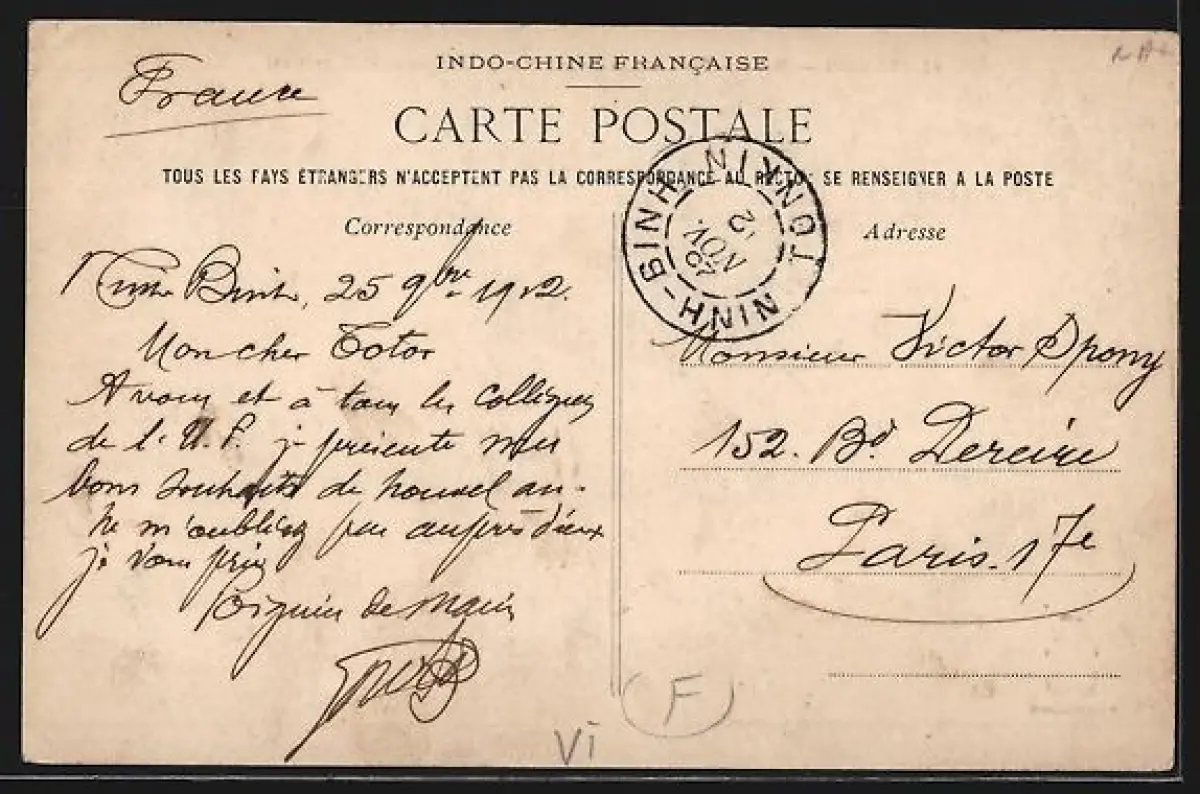 France
INDO-CHINE FRANÇAISE
CARTE POSTALE
TOUS LES PAYS ÉTRANGERS N'ACCEPTENT PAS LA CORRESPONDANCE AU RECTO: SE RENSEIGNER A LA POSTE
Correspondance
Ninh Binh, 25 9bre 1912.
Mon cher Totor
A vous et à tous les collègues
de l'U.P. je présente mes
bons souhaits de nouvel an.
Ne m'oubliez pas auprès d'eux
je vous prie
Poignée de main
NINH-BINH TONKIN
NOV
12
Adresse
Monsieur Victor Spony
152. Bd Pereire
Paris. 17e
F
VI